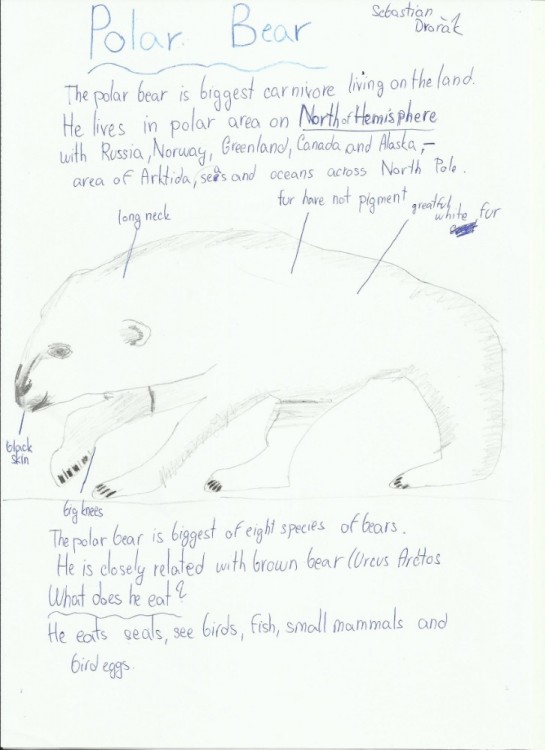 Polar Bear
Sebastian
Dvořák
The polar bear is biggest carnivore living on the land.
He lives in polar area on North of Hemisphere
with Russia, Norway, Greenland, Canada and Alaska,-
area of Arktida, seas and oceans across North Pole.
long neck
fur have not pigment
greatful
white fur
black
skin
big knees
The polar bear is biggest of eight species of bears.
He is closely related with brown bear (Urcus Arctos
What does he eat?
He eats seals, see birds, fish, small mammals and
bird eggs.